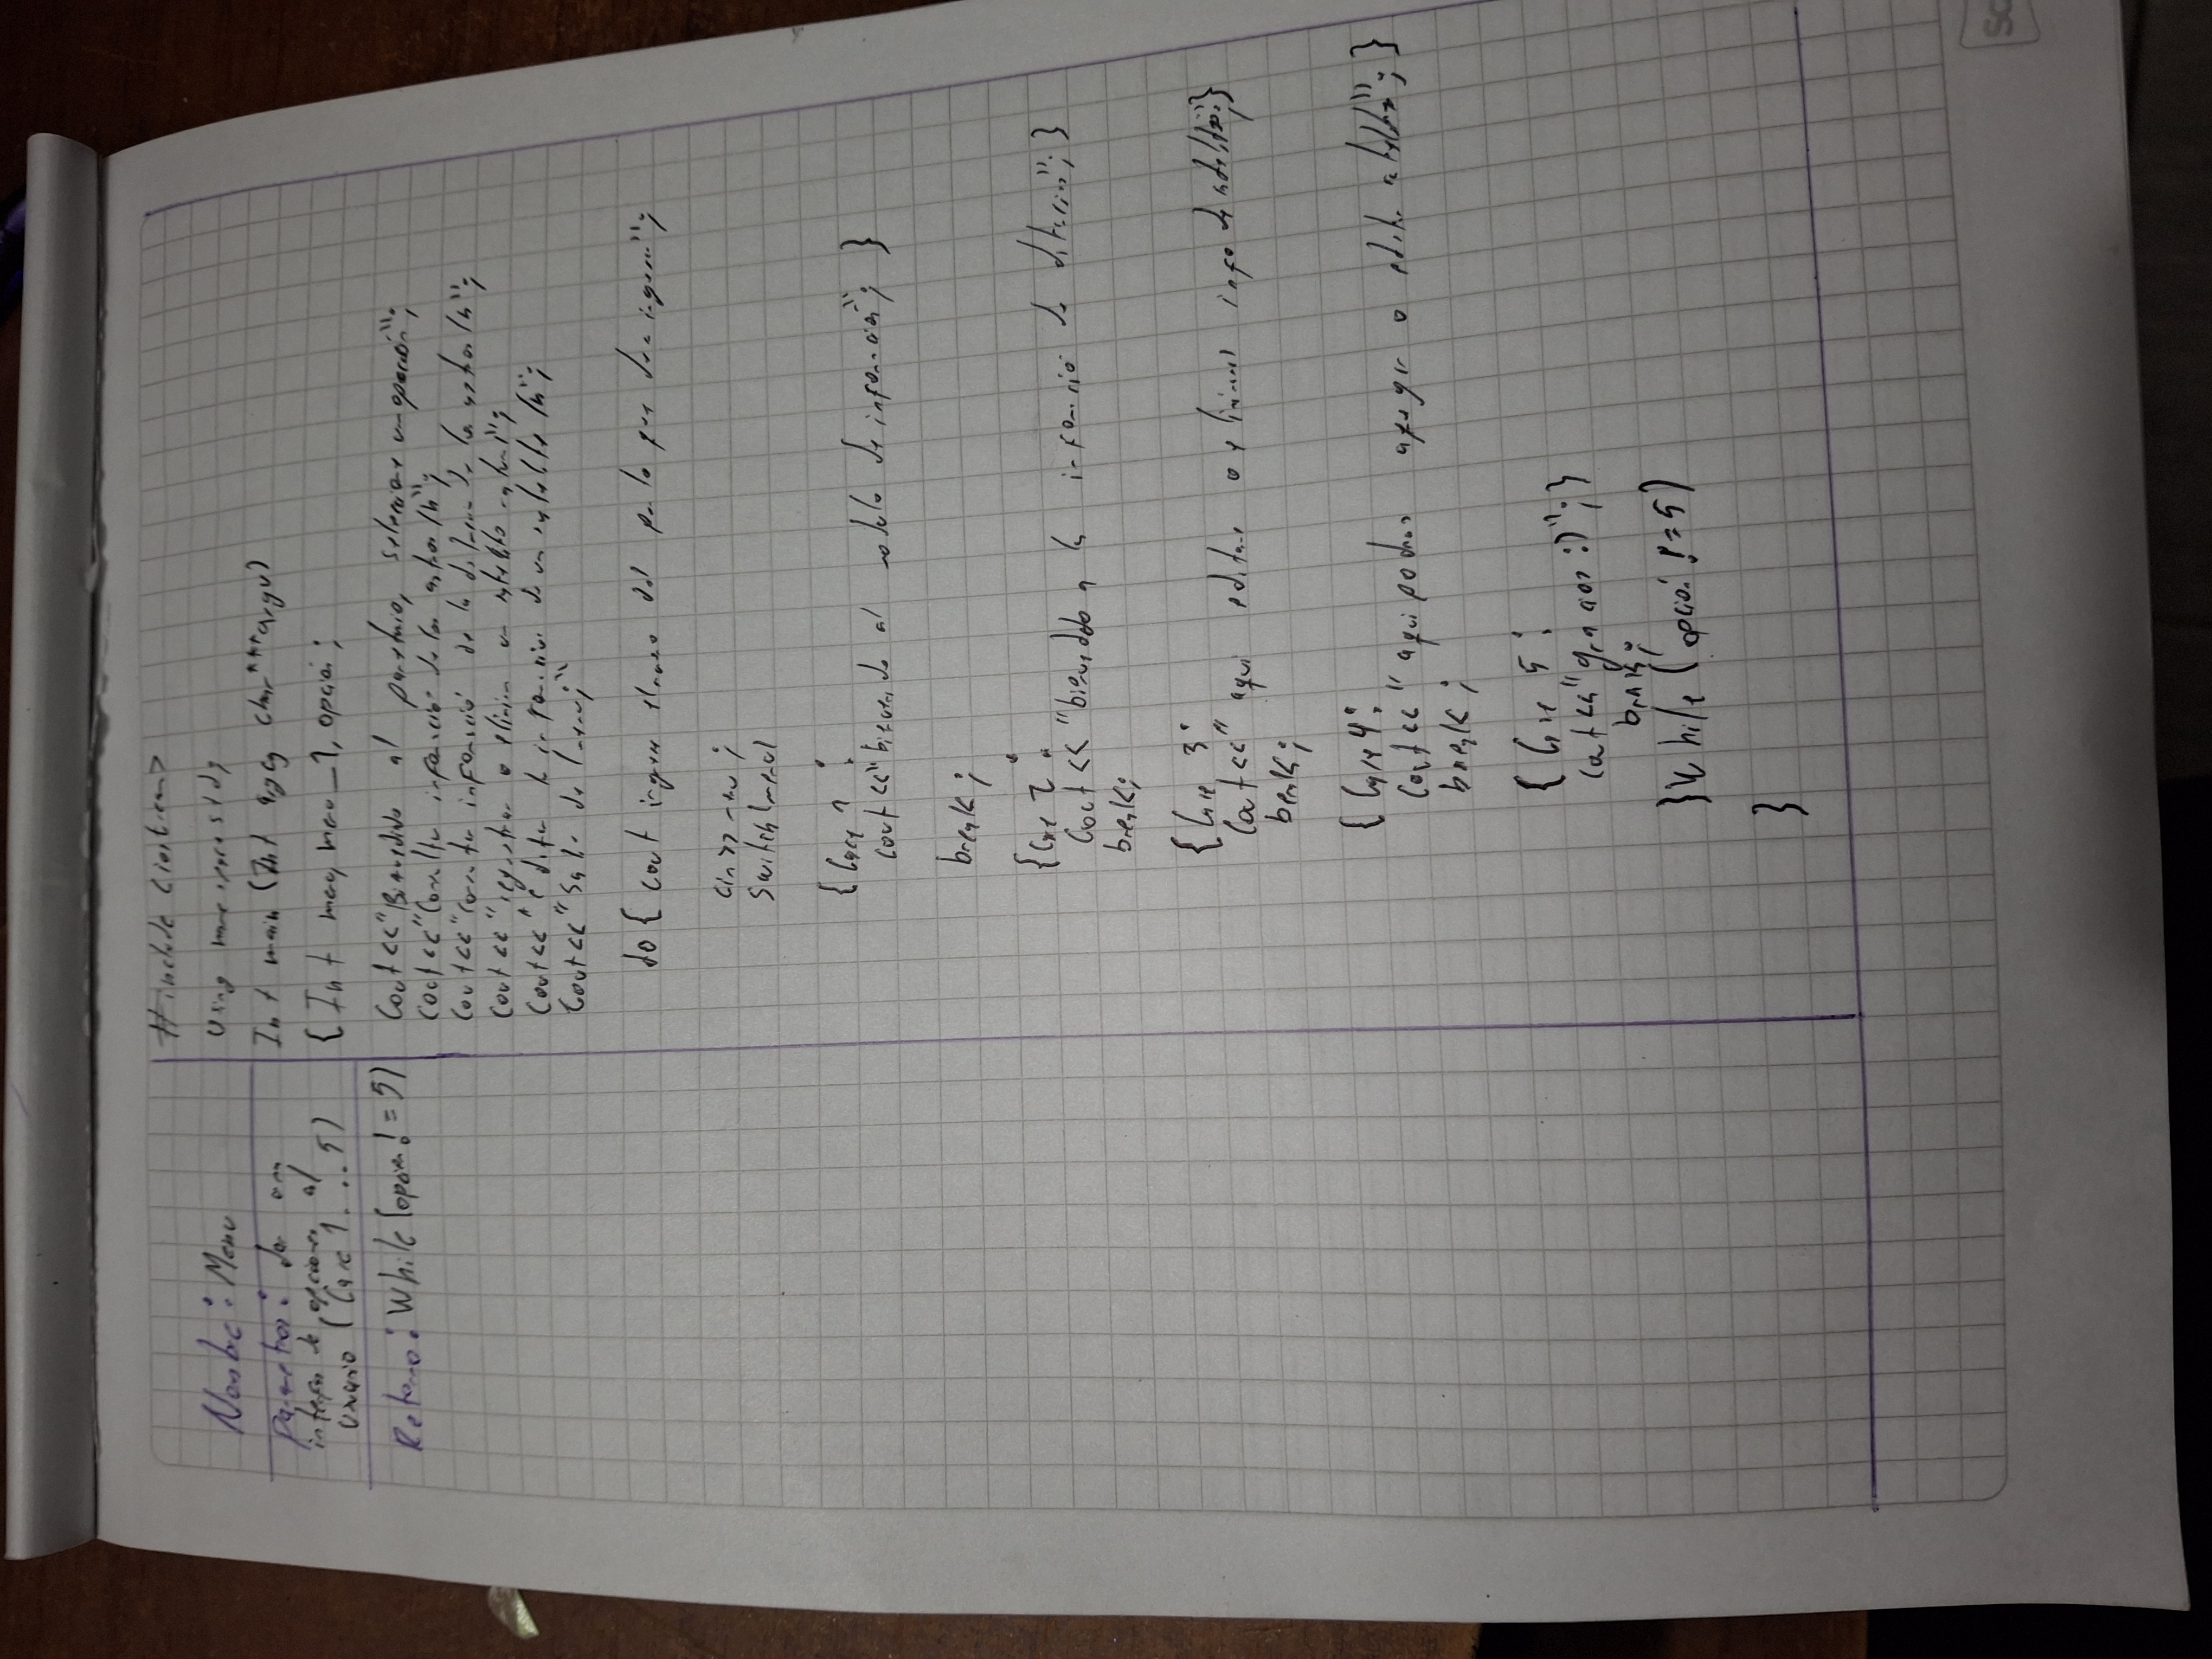 Nombre: Menu
Parametros: dar una
interfaz de opciones al
usuario (Case 1...5)
Retorno: While (opcion != 5)
#include <iostream>
Using namespace std;
Int main (Int argc, char***argv)
{ Int menu, menu_1, opción;
Cout<<"Bienvenido al planetario, seleccione una opcioón";
Cout<<"Consultar información de los astros /n";
Cout<<"Consultar información de la distancia de los astros /n";
Cout<<"registrar o eliminar un satelite natural";
Cout<<"Editar la información de un satelite /n";
Cout<<"Salir del menu;"
do { cout ingrese el numero del punto que desea ingresar";
cin>>menu;
Switch(menu)
{Case 1:
cout<<"bienvenido al modulo de información"; }
break;
{Case 2:
Cout<<"bienvenido a la información de distancias"; }
break;
{Case 3:
Cout<<"aqui editaras o eliminaras info de satelites";}
break;
{Case 4:
Cout<<"aqui podras agregar o editar satelites"; }
break;
{Case 5:
Cout<<"gracias :)";}
break;
}While (opción != 5)
}